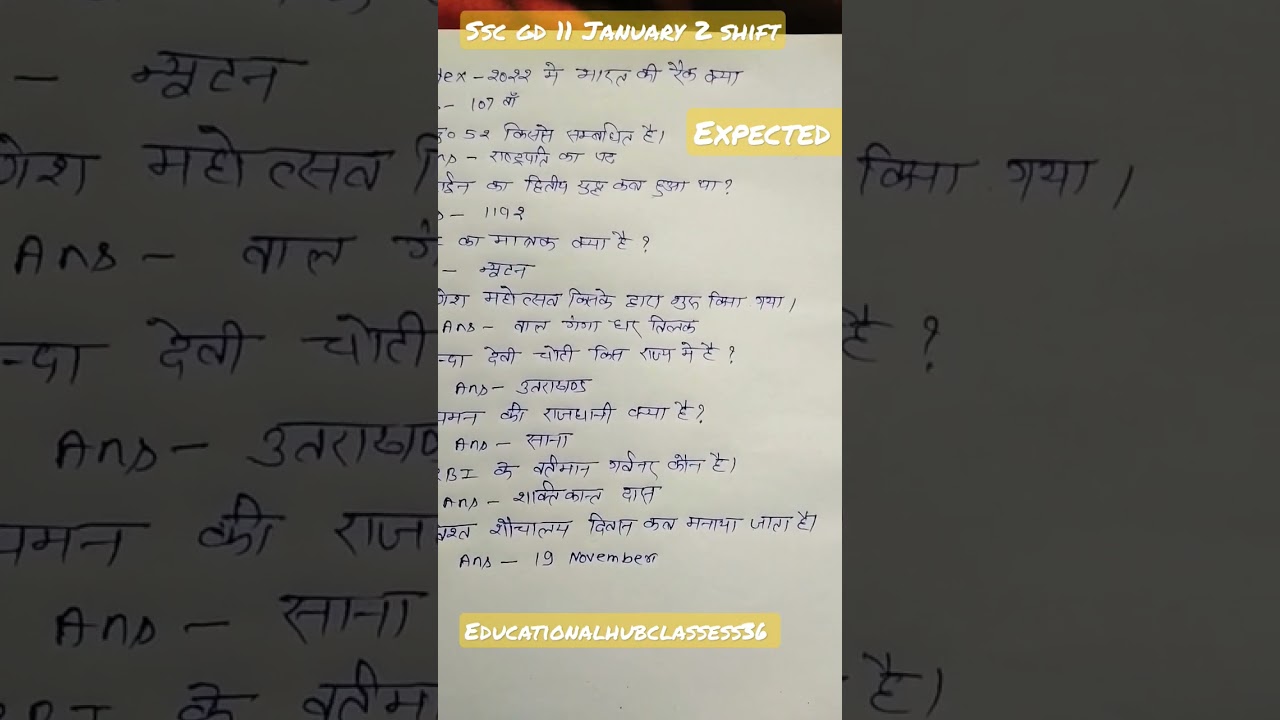 SSC GD 11 JANUARY 2 SHIFT
dex - २०२२ मे भारत की रैंक क्या
- 107 वाँ
EXPECTED
५२ किससे सम्बधित है।
Ans - राष्ट्रपति का पद
का द्वितीय युद्ध कब हुआ था?
- 119२
का मात्रक क्या है ?
- न्यूटन
णेश महोत्सव किसके द्वारा शुरु किया गया।
Ans - बाल गंगा धर तिलक
न्दा देवी चोटी किस राज्य मे है ?
Ans - उतराखण्ड
यमन की राजधानी क्या है?
Ans - साना
RBI के वर्तमान गर्वनर कौन है।
Ans - शक्तिकान्त दास
विश्व शौचालय दिवस कब मनाया जाता है।
Ans - 19 November
EDUCATIONALHUBCLASSESS36
- न्यूटन
णेश महोत्सव
किया गया।
Ans - बाल
न्दा देवी चोटी
है ?
Ans - उतराखण्ड
यमन की राज
Ans - साना
RBI के वर्तम
है।